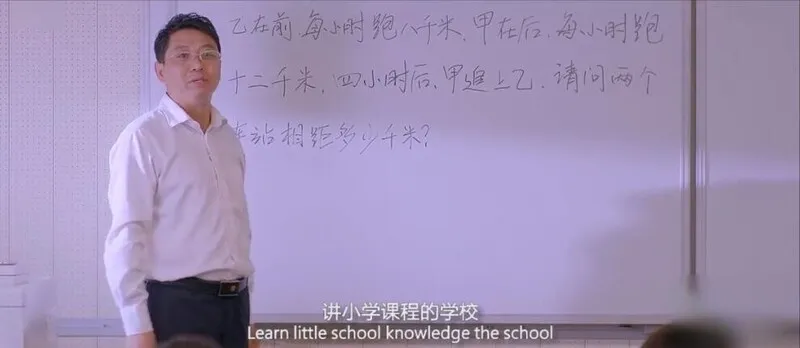 乙在前,每小时跑八千米,甲在后,每小时跑
十二千米,四小时后,甲追上乙,请问两个
车站相距多少千米?
讲小学课程的学校
Learn little school knowledge the school